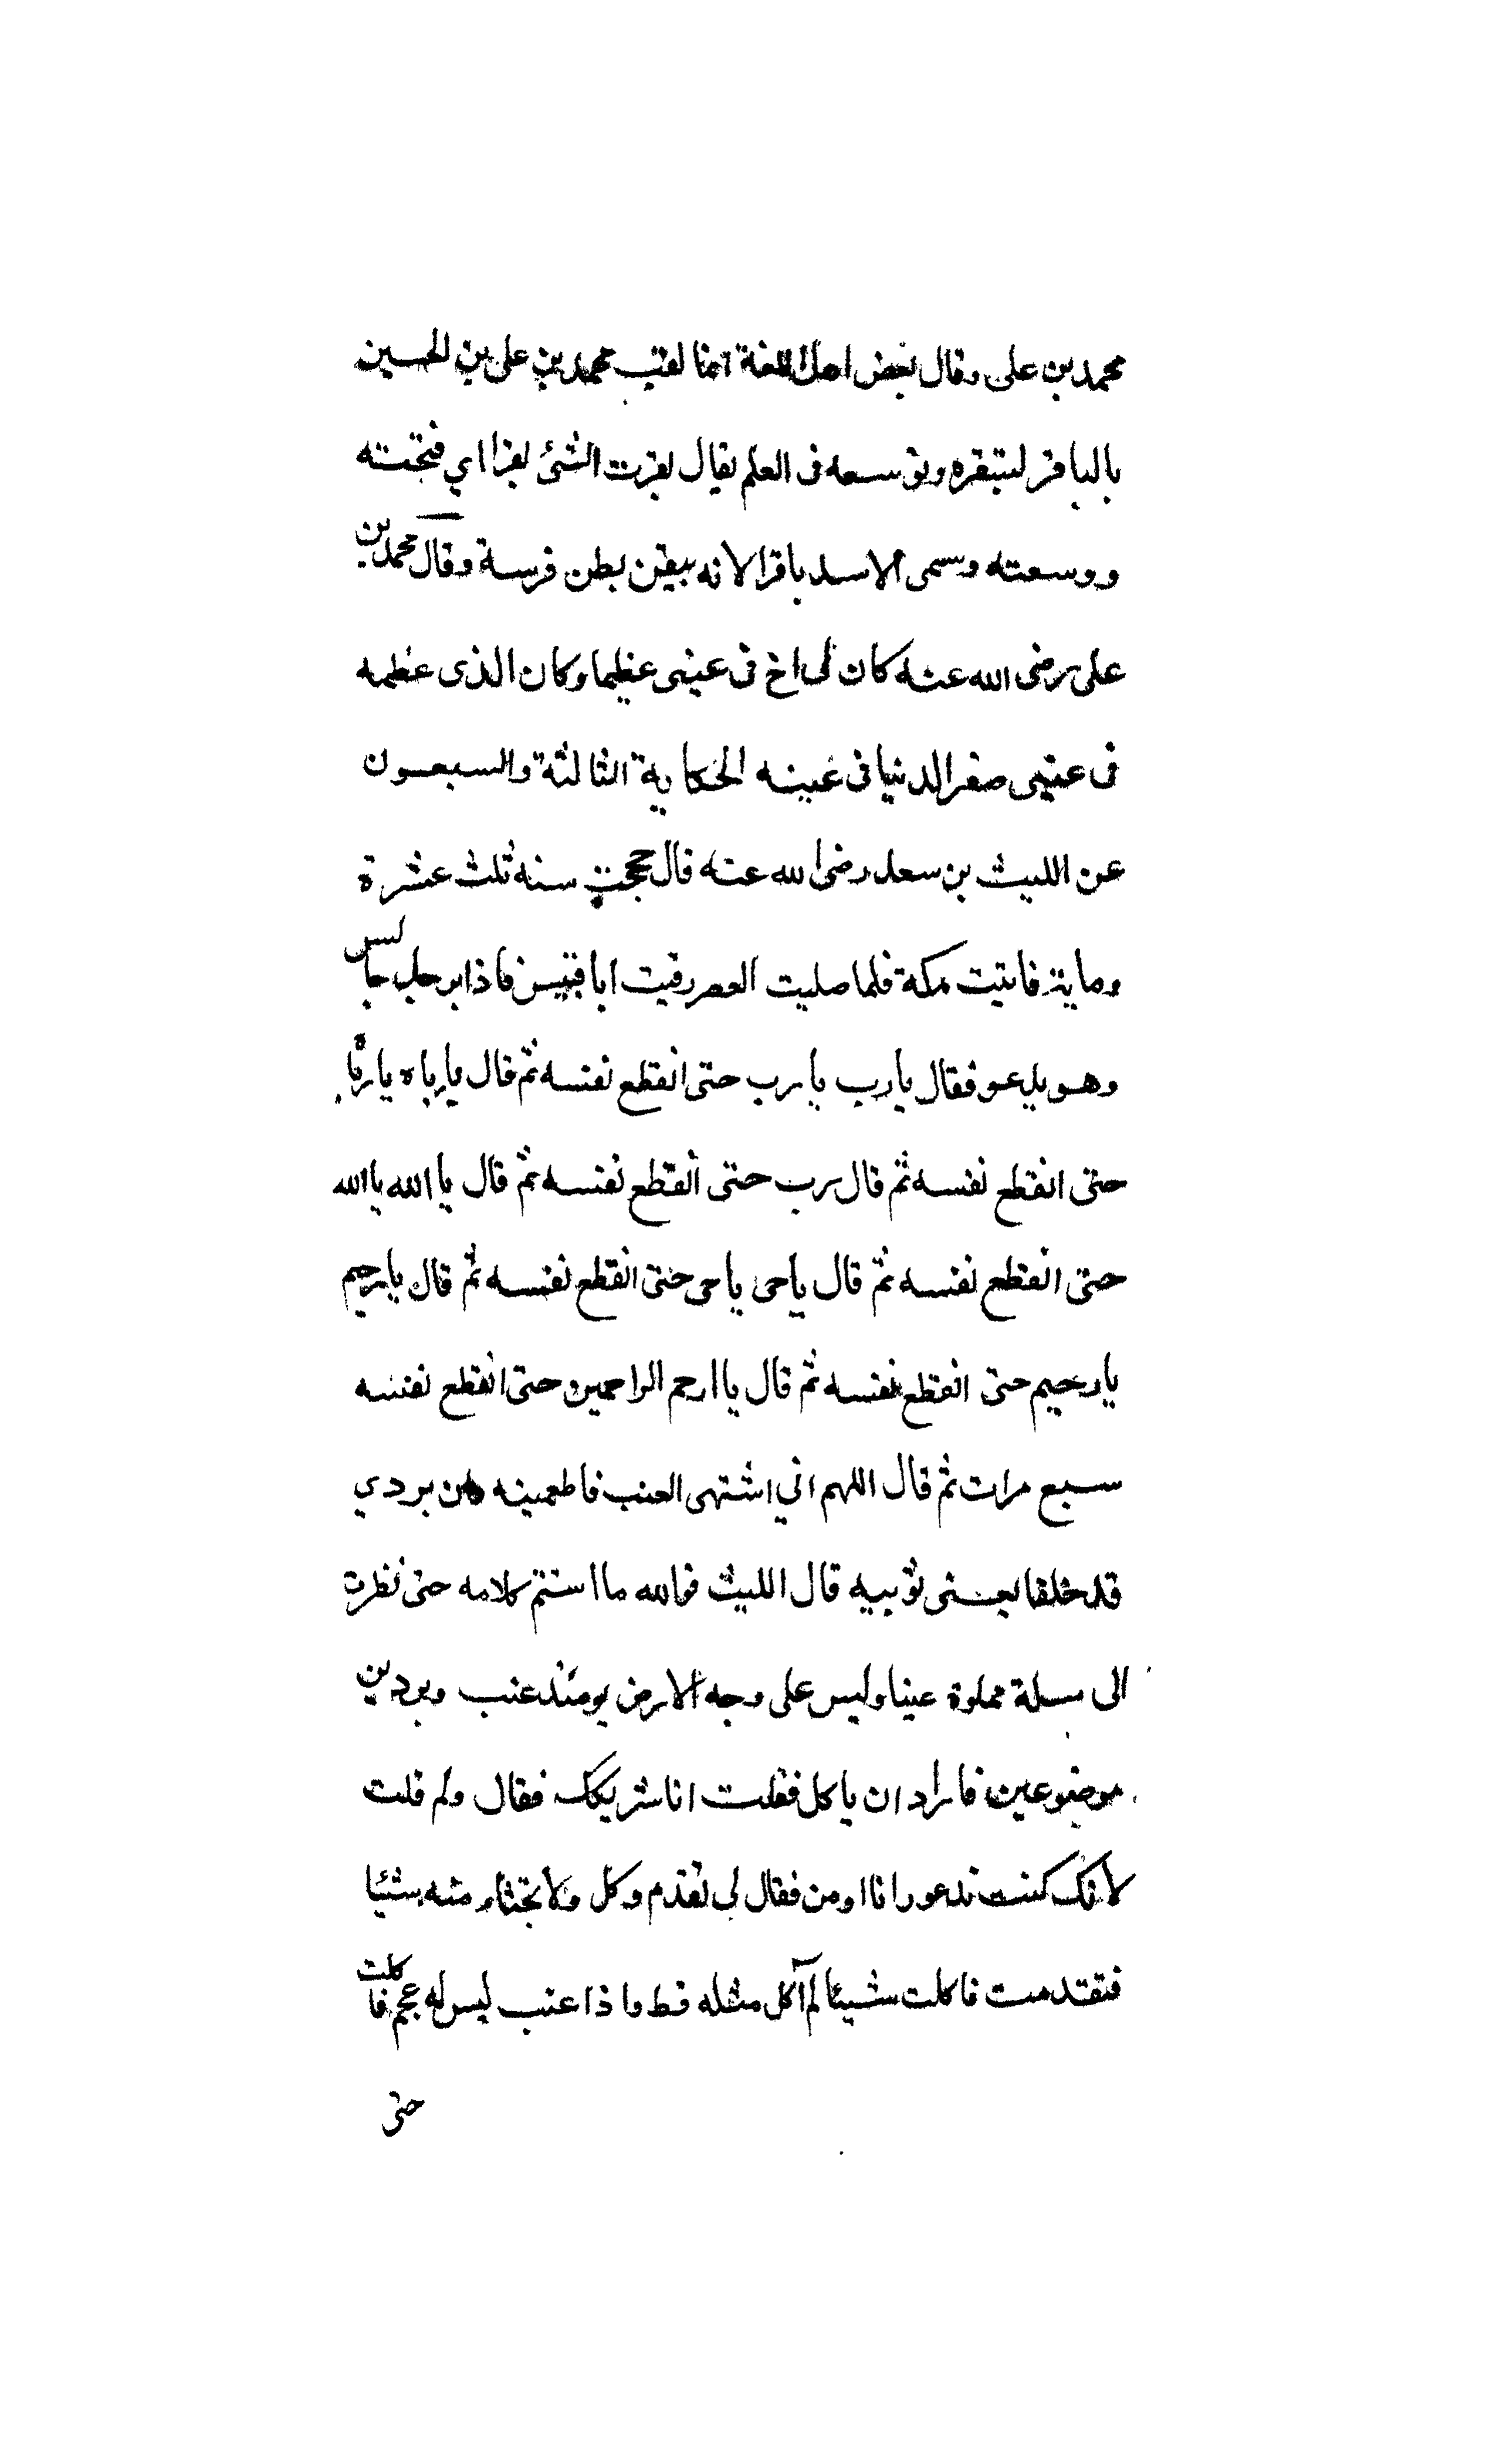 محمد بن على وقال بعض اهل اللغة انما لقب محمد بن على بن الحسين
بالباقر لتبقره وتوسعه فى العلم يقال بقرت الشئ بقرا اي فتحته
ووسعته وسمى الاسد باقرا لانه يبقر بطن فرسة وقال محمد بن
على رضى الله عنه كان لى اخ فى عينى عظيما وكان الذى عظمه
فى عينى صغر الدنيا فى عينه الحكاية الثالثة والسبعون
عن الليث بن سعد رضى الله عنه قال حججت سنة ثلث عشرة
وماية فاتيت مكة فلما صليت العصر رقيت ابا قبيس فاذا برجل جالس
وهو يدعو فقال يا رب يا رب حتى انقطع نفسه ثم قال يا رباه يا رباه
حتى انقطع نفسه ثم قال رب حتى انقطع نفسه ثم قال يا الله يا الله
حتى انقطع نفسه ثم قال يا حى يا حى حتى انقطع نفسه ثم قال يا رحيم
يا رحيم حتى انقطع نفسه ثم قال يا ارحم الراحمين حتى انقطع نفسه
سبع مرات ثم قال اللهم اني اشتهى العنب فاطعمينه وان بردي
قد خلقا يعنى ثوبيه قال الليث فوالله ما استتم كلامه حتى نظرت
الى سلة مملوة عنبا وليس على وجه الارض يومئذ عنب وبردين
موضوعين فاراد ان ياكل فقلت انا شريكك فقال ولم قلت
لانك كنت تدعو وانا اومن فقال لى تقدم وكل ولا تخبأ منه شيئا
فتقدمت فاكلت شيئا لم آكل مثله قط واذا عنب ليس له عجم فاكلت
حتى